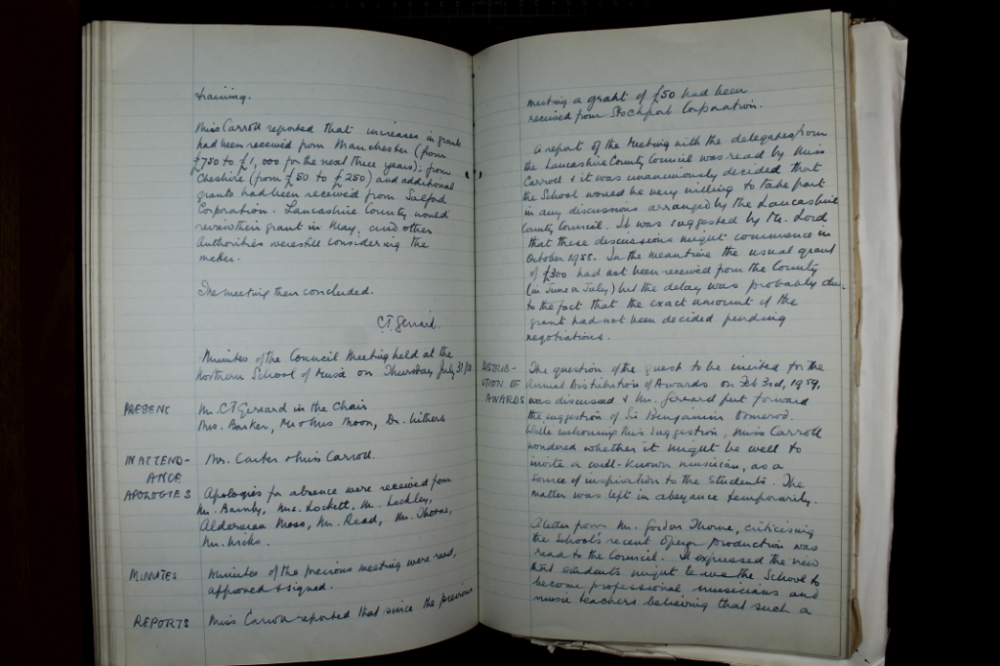 training.
Miss Carroll reported that increases in grants
had been received from Manchester (from
£750 to £1,000 for the next three years); from
Cheshire (from £50 to £250) and additional
grants had been received from Salford
Corporation. Lancashire County would
review their grant in May, and other
Authorities were still considering the
matter.
The meeting then concluded.
C.T. Gerrard.
Minutes of the Council Meeting held at the
Northern School of Music on Thursday July 31
PRESENT Mr. C T Gerrard in the Chair
Mrs. Barker, Mr & Mrs. Moon, Dr.
IN ATTEND-
ANCE Mrs. Carter & Miss Carroll.
APOLOGIES Apologies for absence were received from
Mr. Barnby, Mrs. Lockett, Mr. Lockley,
Alderman Moss, Mr. Read, Mr. Thorne,
Mr. Wicks.
MINUTES Minutes of the previous meeting were read,
approved & signed.
REPORTS Miss Carroll reported that since the previous
meeting a grant of £50 had been
received from Stockport Corporation.
A report of the Meeting with the delegates from
the Lancashire County Council was read by Miss
Carroll & it was unanimously decided that
the School would be very willing to take part
in any discussions arranged by the Lancashire
County Council. It was suggested by Mr. Lord
that these discussions might commence in
October 1958. In the meantime the usual grant
of £300 had not been received from the County
(in June or July) but the delay was probably due
to the fact that the exact amount of the
grant had not been decided pending
negotiations.
DISTRIB-
UTION OF
AWARDS The question of the guest to be invited for the
Annual Distribution of Awards on Feb 3rd, 1959,
was discussed & Mr. Gerrard put forward
the suggestion of Sir Benjamin Ormerod.
While welcoming this suggestion, Miss Carroll
wondered whether it might be well to
invite a well-known musician, as a
source of inspiration to the students. The
matter was left in abeyance temporarily.
A letter from Mr. Gordon Thorne, criticising
the School's recent Opera Production was
read to the Council. It expressed the view
that students might leave the School to
become professional musicians and
music teachers believing that such a